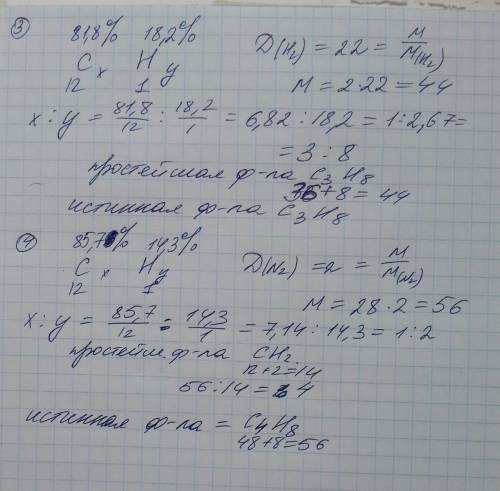 ③ 81,8% 18,2% D(H₂) = 22 = M/M(H₂)
Cₓ H_y M = 2·22 = 44
12 1
x : y = 81,8/12 : 18,2/1 = 6,82 : 18,2 = 1 : 2,67 =
= 3 : 8
простейшая ф-ла C₃H₈
36+8 = 44
истинная ф-ла C₃H₈
④ 85,7% 14,3% D(N₂) = 2 = M/M(N₂)
Cₓ H_y
12 1 M = 28·2 = 56
x : y = 85,7/12 : 14,3/1 = 7,14 : 14,3 = 1 : 2
простейш. ф-ла CH₂
12+2=14
56 : 14 = 4
истинная ф-ла = C₄H₈
48+8=56